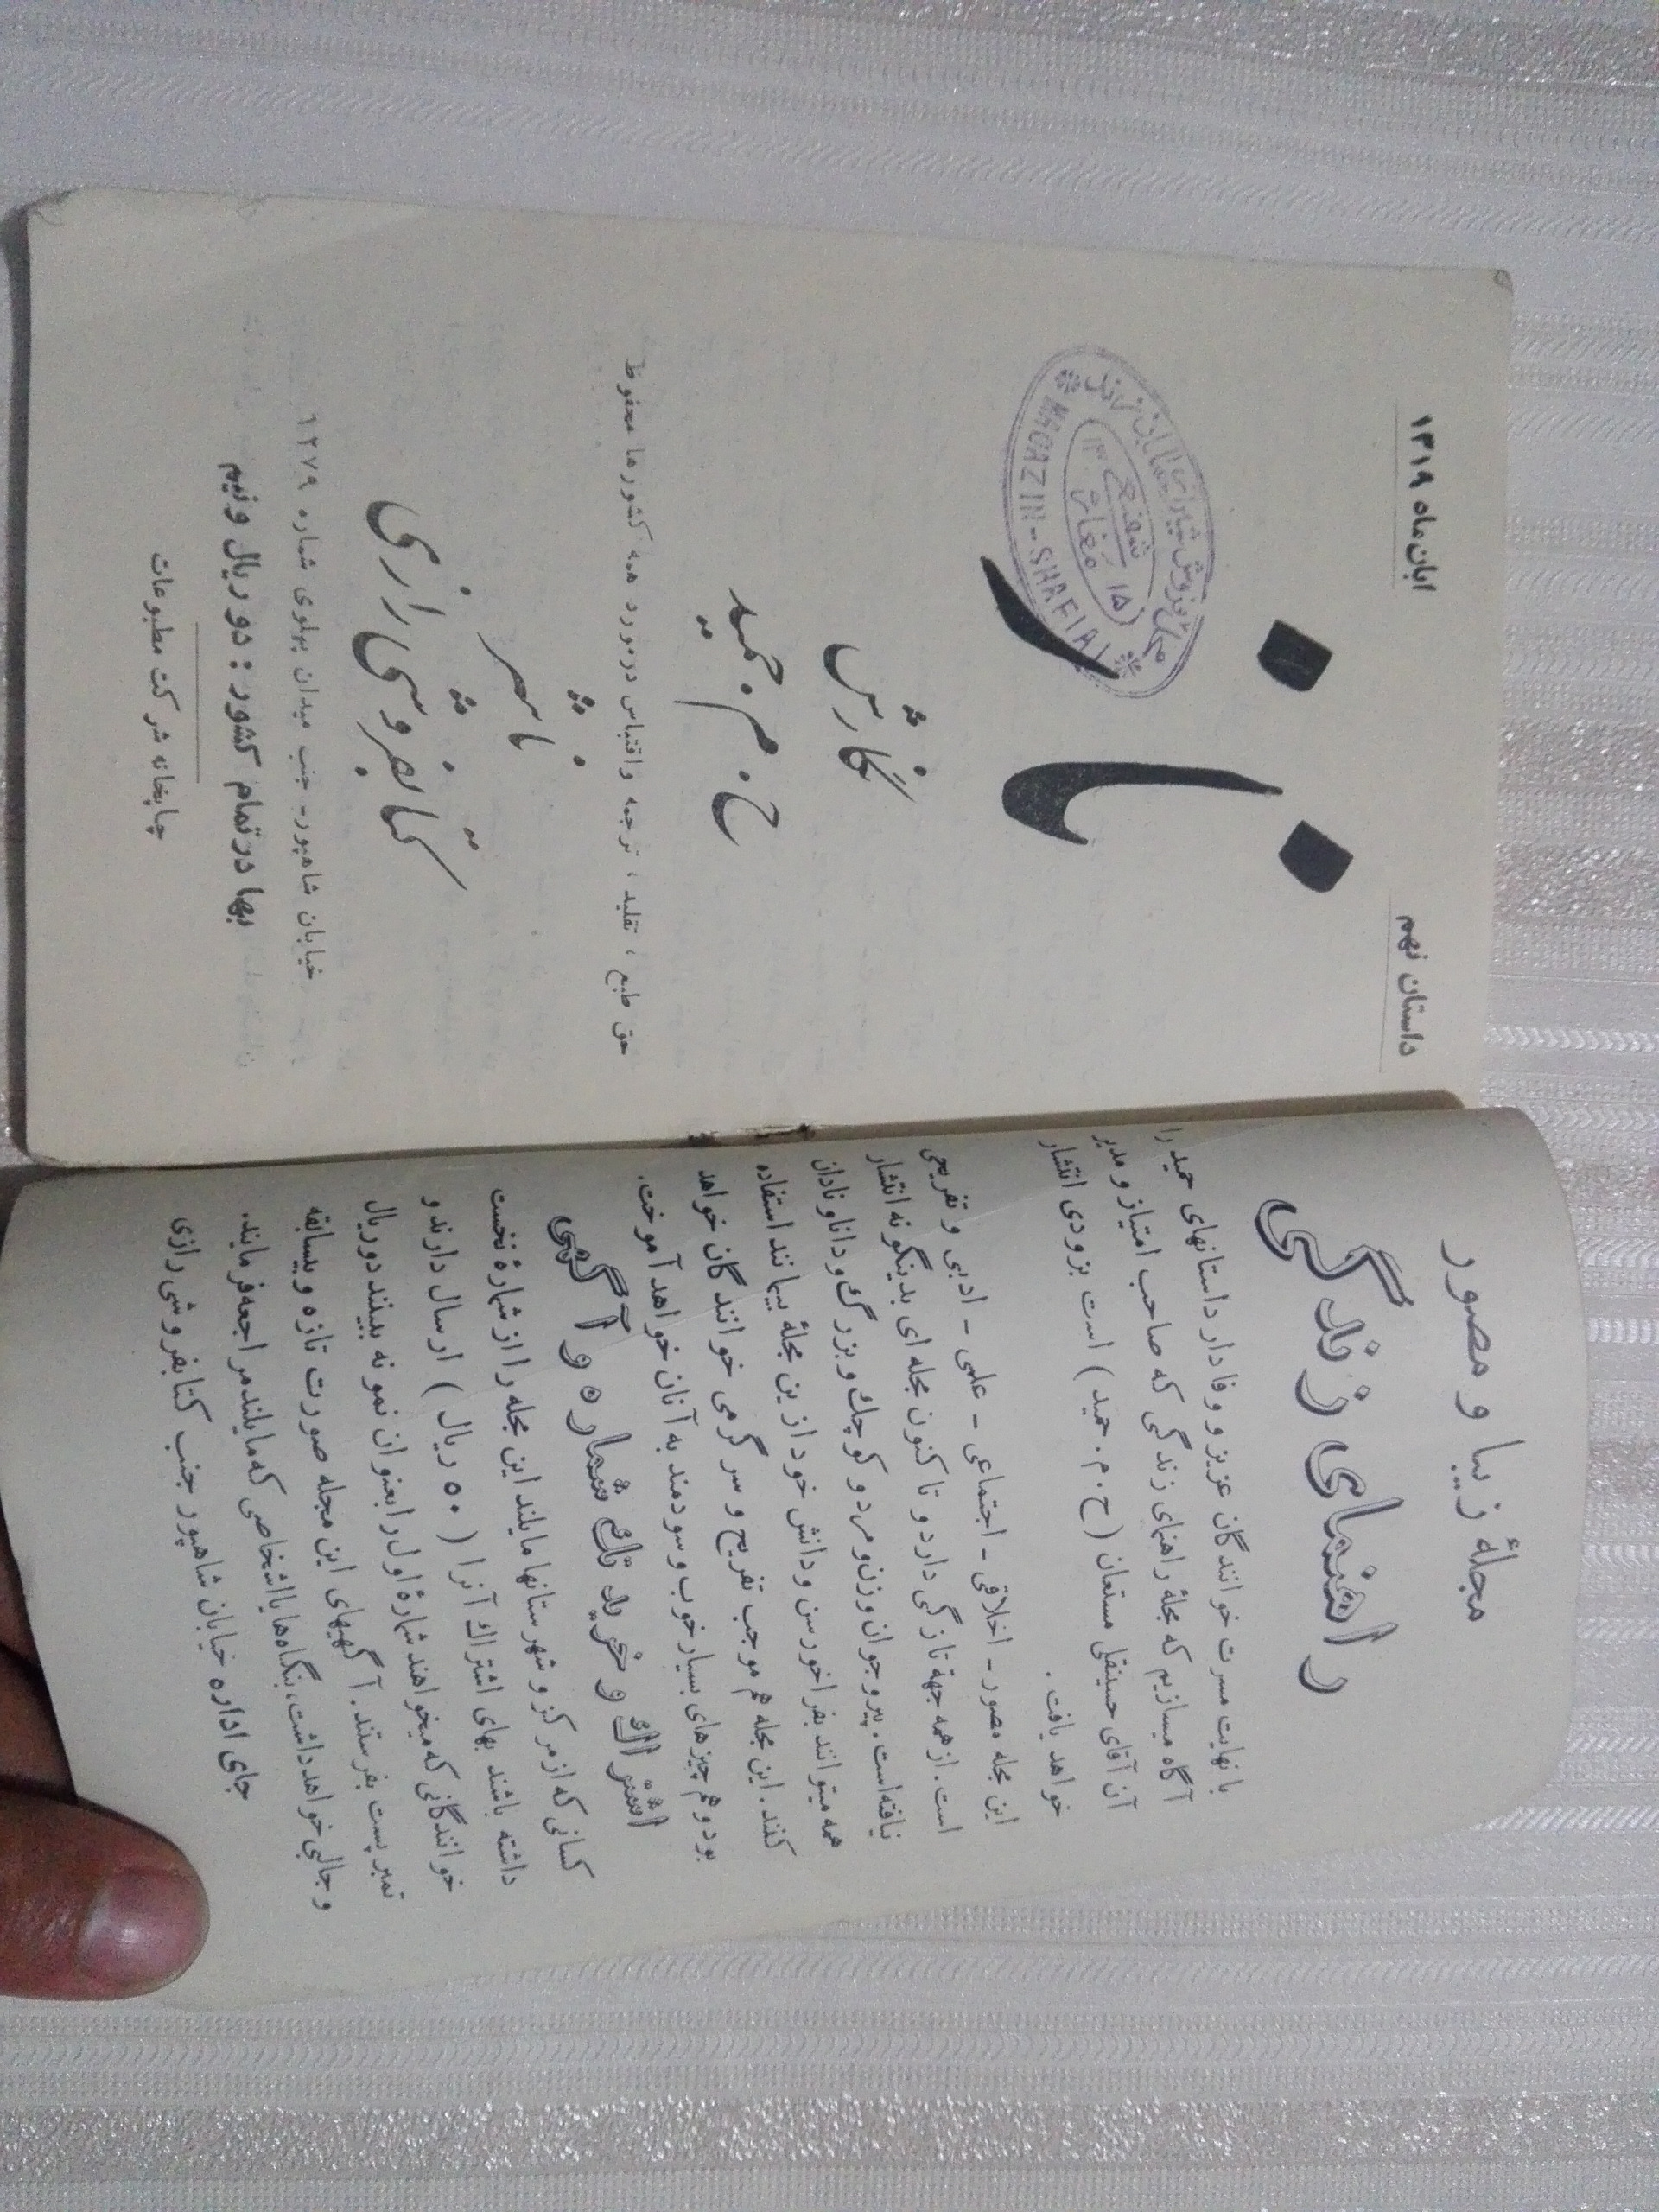 مجلهٔ زیبا و مصور
راهنمای زندگی
با نهایت مسرت خوانندگان عزیز و وفادار داستانهای حمید را
آگاه میسازیم که مجلهٔ راهنمای زندگی که صاحب امتیاز و مدیر
آن آقای حسینقلی مستعان (ح.م.حمید) است بزودی انتشار
خواهد یافت.
این مجله مصور - اخلاقی - اجتماعی - علمی - ادبی و تفریحی
است. از همه جهة تازگی دارد و تا کنون مجله‌ای بدینگونه انتشار
نیافته‌است. پیر و جوان و زن و مرد و کوچك و بزرگ و دانا و نادان
همه میتوانند بفراخور سن و دانش خود از این مجلهٔ بیمانند استفاده
کنند. این مجله هم موجب تفریح و سرگرمی خوانندگان خواهد
بود و هم چیزهای بسیار خوب و سودمند به آنان خواهد آموخت.
اشتراك و خرید تك شماره و آگهی
کسانی که از مرکز و شهرستانها مایلند این مجله را از شمارهٔ نخست
داشته باشند بهای اشتراك آنرا (۵۰ ریال) ارسال دارند و
خوانندگانی که میخواهند شمارهٔ اول را بعنوان نمونه ببینند دو ریال
تمبر پست بفرستند. آگهیهای این مجله صورت تازه و بیسابقه
و جالبی خواهد داشت، بنگاه‌ها یا اشخاصی که مایلند مراجعه فرمایند.
جای اداره خیابان شاهپور جنب کتابفروشی رازی
داستان نهم
ابان ماه ۱۳۱۹
ناز
MAGAZIN-SHAFIAI
نگارش
ح.م.حمید
حق طبع ، تقلید ، ترجمه و اقتباس در مورد همه کشورها محفوظ
ناشر
کتابفروشی رازی
خیابان شاهپور- جنب میدان پهلوی شماره ۱۲۷۹
بها در تمام کشور : دو ریال و نیم
چاپخانه شرکت مطبوعات